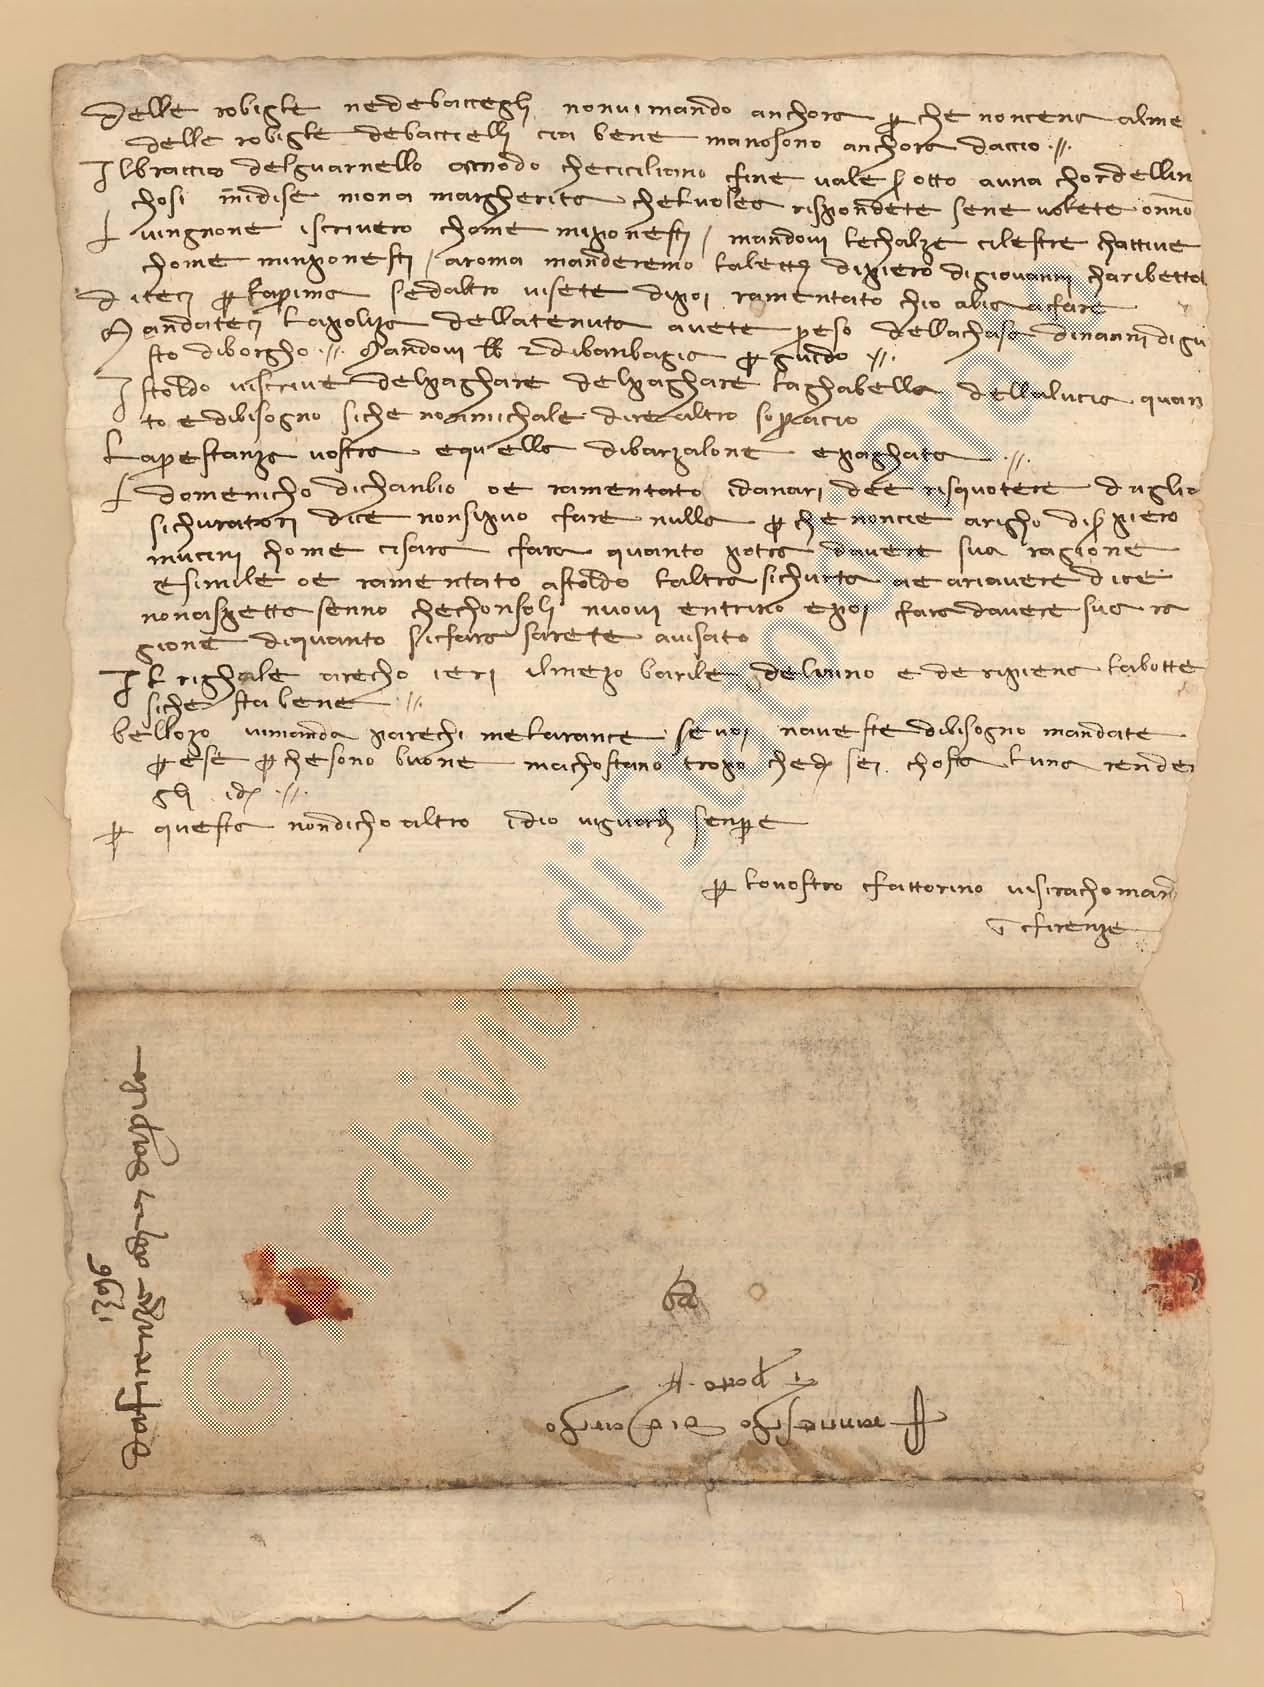 delle robiglie nedebaccegli nonvi mando anchora perche noncena alme
delle robiglie debaccielli cia bene manosono anchora daccio
Il braccio del guarnello
chosi midise mona margherita chelvolea rispondete sene volete onno
A vingnone iscrivero chome miponesti / mandovi lechalze cilestre chattive
chome minponesti / a roma manderemo lalettera dipiero digiovanni
diteci per laprima sedaltro visete dipoi ramentato chio abia affare
Mandateci lapoliza dellatenuta avete preso dellachasa dinanni digui
sto diborgho Mandovi lb 2 dibanbagia per guido
Istoldo viscrive delpaghare delpaghare laghabella dellalucia quan
to e dibisogno siche nonmichale dire altro sopracio
Laprestanza vostra e quella dibarzalone e paghata
A domenicho dichanbio oe ramentato idanari dee risquotere dagli a
sichuratori dice nonsipuo fare nulla perche noncie arigho di ser piero
mucini chome cisara fara quanto potra davere sua ragione
e simile oe ramentato astoldo laltra sichurta ae ariavere dice
nonaspetta senno chechonsoli nuovi entrino epoi fara davere sua ra
gione diquanto sifara sarete avisato
Il righale arecho ieri ilmezo barile delvino e de ripiena labotte
siche sta bene
bellozo vimanda parechi melarance sevoi naveste dibisogno mandate
per ese perche sono buone machostano tropo che d sei chosta luna rende
gli id
per questa nondicho altro idio viguardi senpre
per lo vostro fattorino visirachomanda
in firenze
Francescho di Marcho
in prato
da firenze
1396